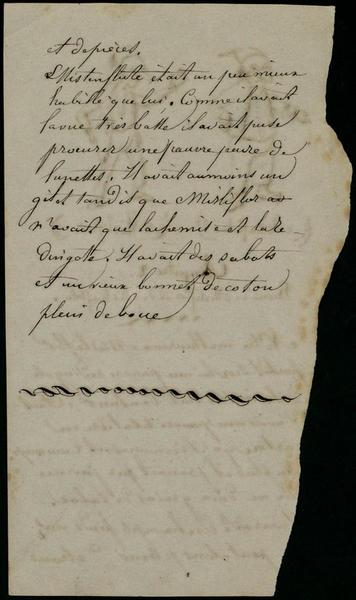 et de pièces.
Mistenflute était un peu mieux
habillé que lui. Comme il avait
la vue très basse il avait pu se
procurer une pauvre paire de
lunettes. Il avait au moins un
gilet tandis que Mirliflor av
n'avait que la chemise et la re-
dingote. Il avait des sabots
et un vieux bonnet de coton
plein de boue